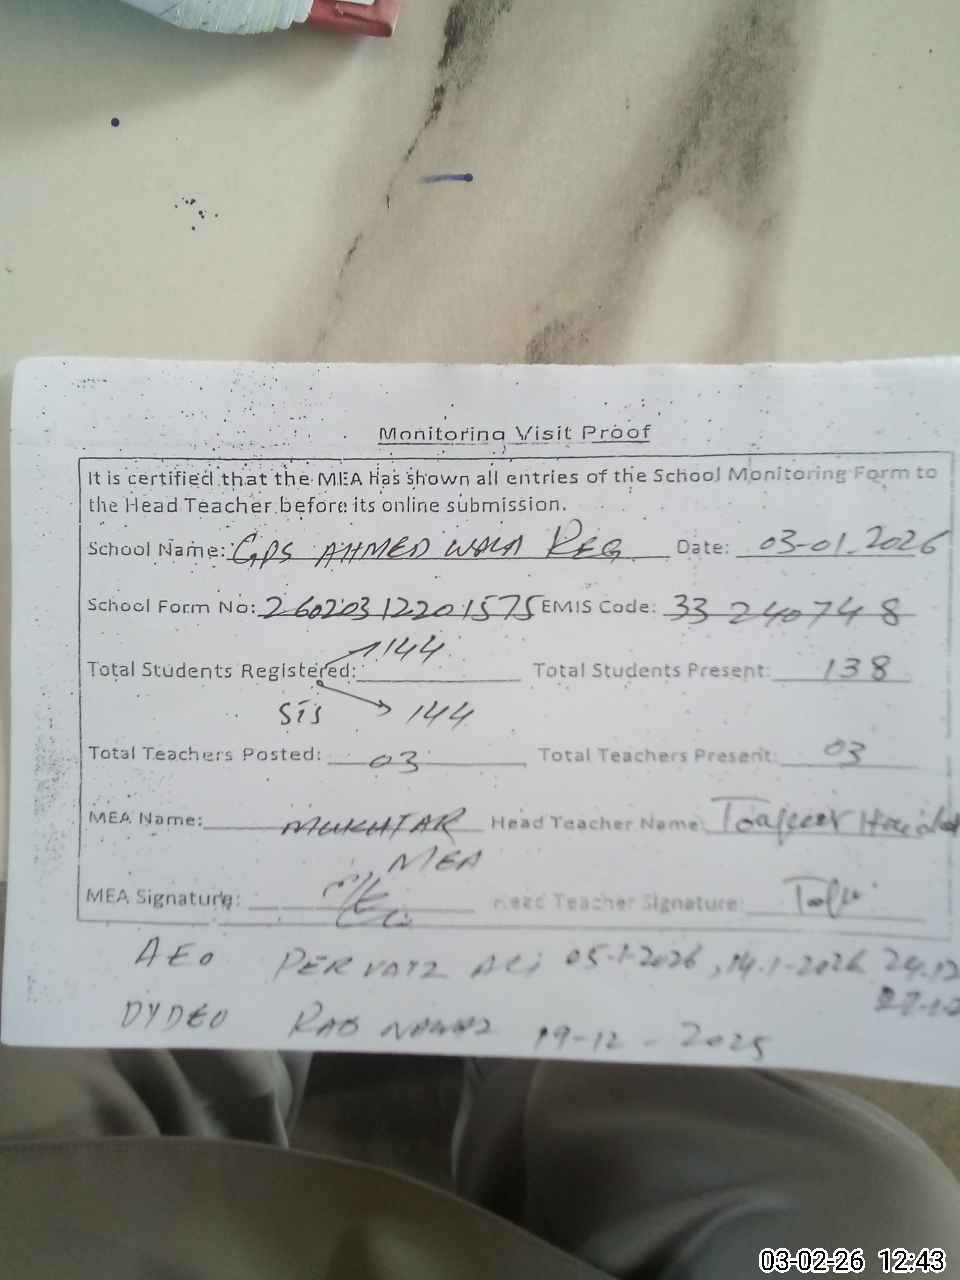 Monitoring Visit Proof
It is certified that the MEA Has shown all entries of the School Monitoring Form to
the Head Teacher before its online submission.
School Name: GPS AHMED WALA REG Date: 03-01-2026
School Form No: 26020312201575 EMIS Code: 33240748
144
Total Students Registered: Total Students Present: 138
SIS 144
Total Teachers Posted: 03 Total Teachers Present: 03
MEA Name: MUKHTAR Head Teacher Name:
MEA
MEA Signature: Head Teacher Signature:
AEO PERVAIZ ALI 05-1-2026, 14-1-2026 24.12
DYDEO RAB NAWAZ 19-12-2025
03-02-26 12:43